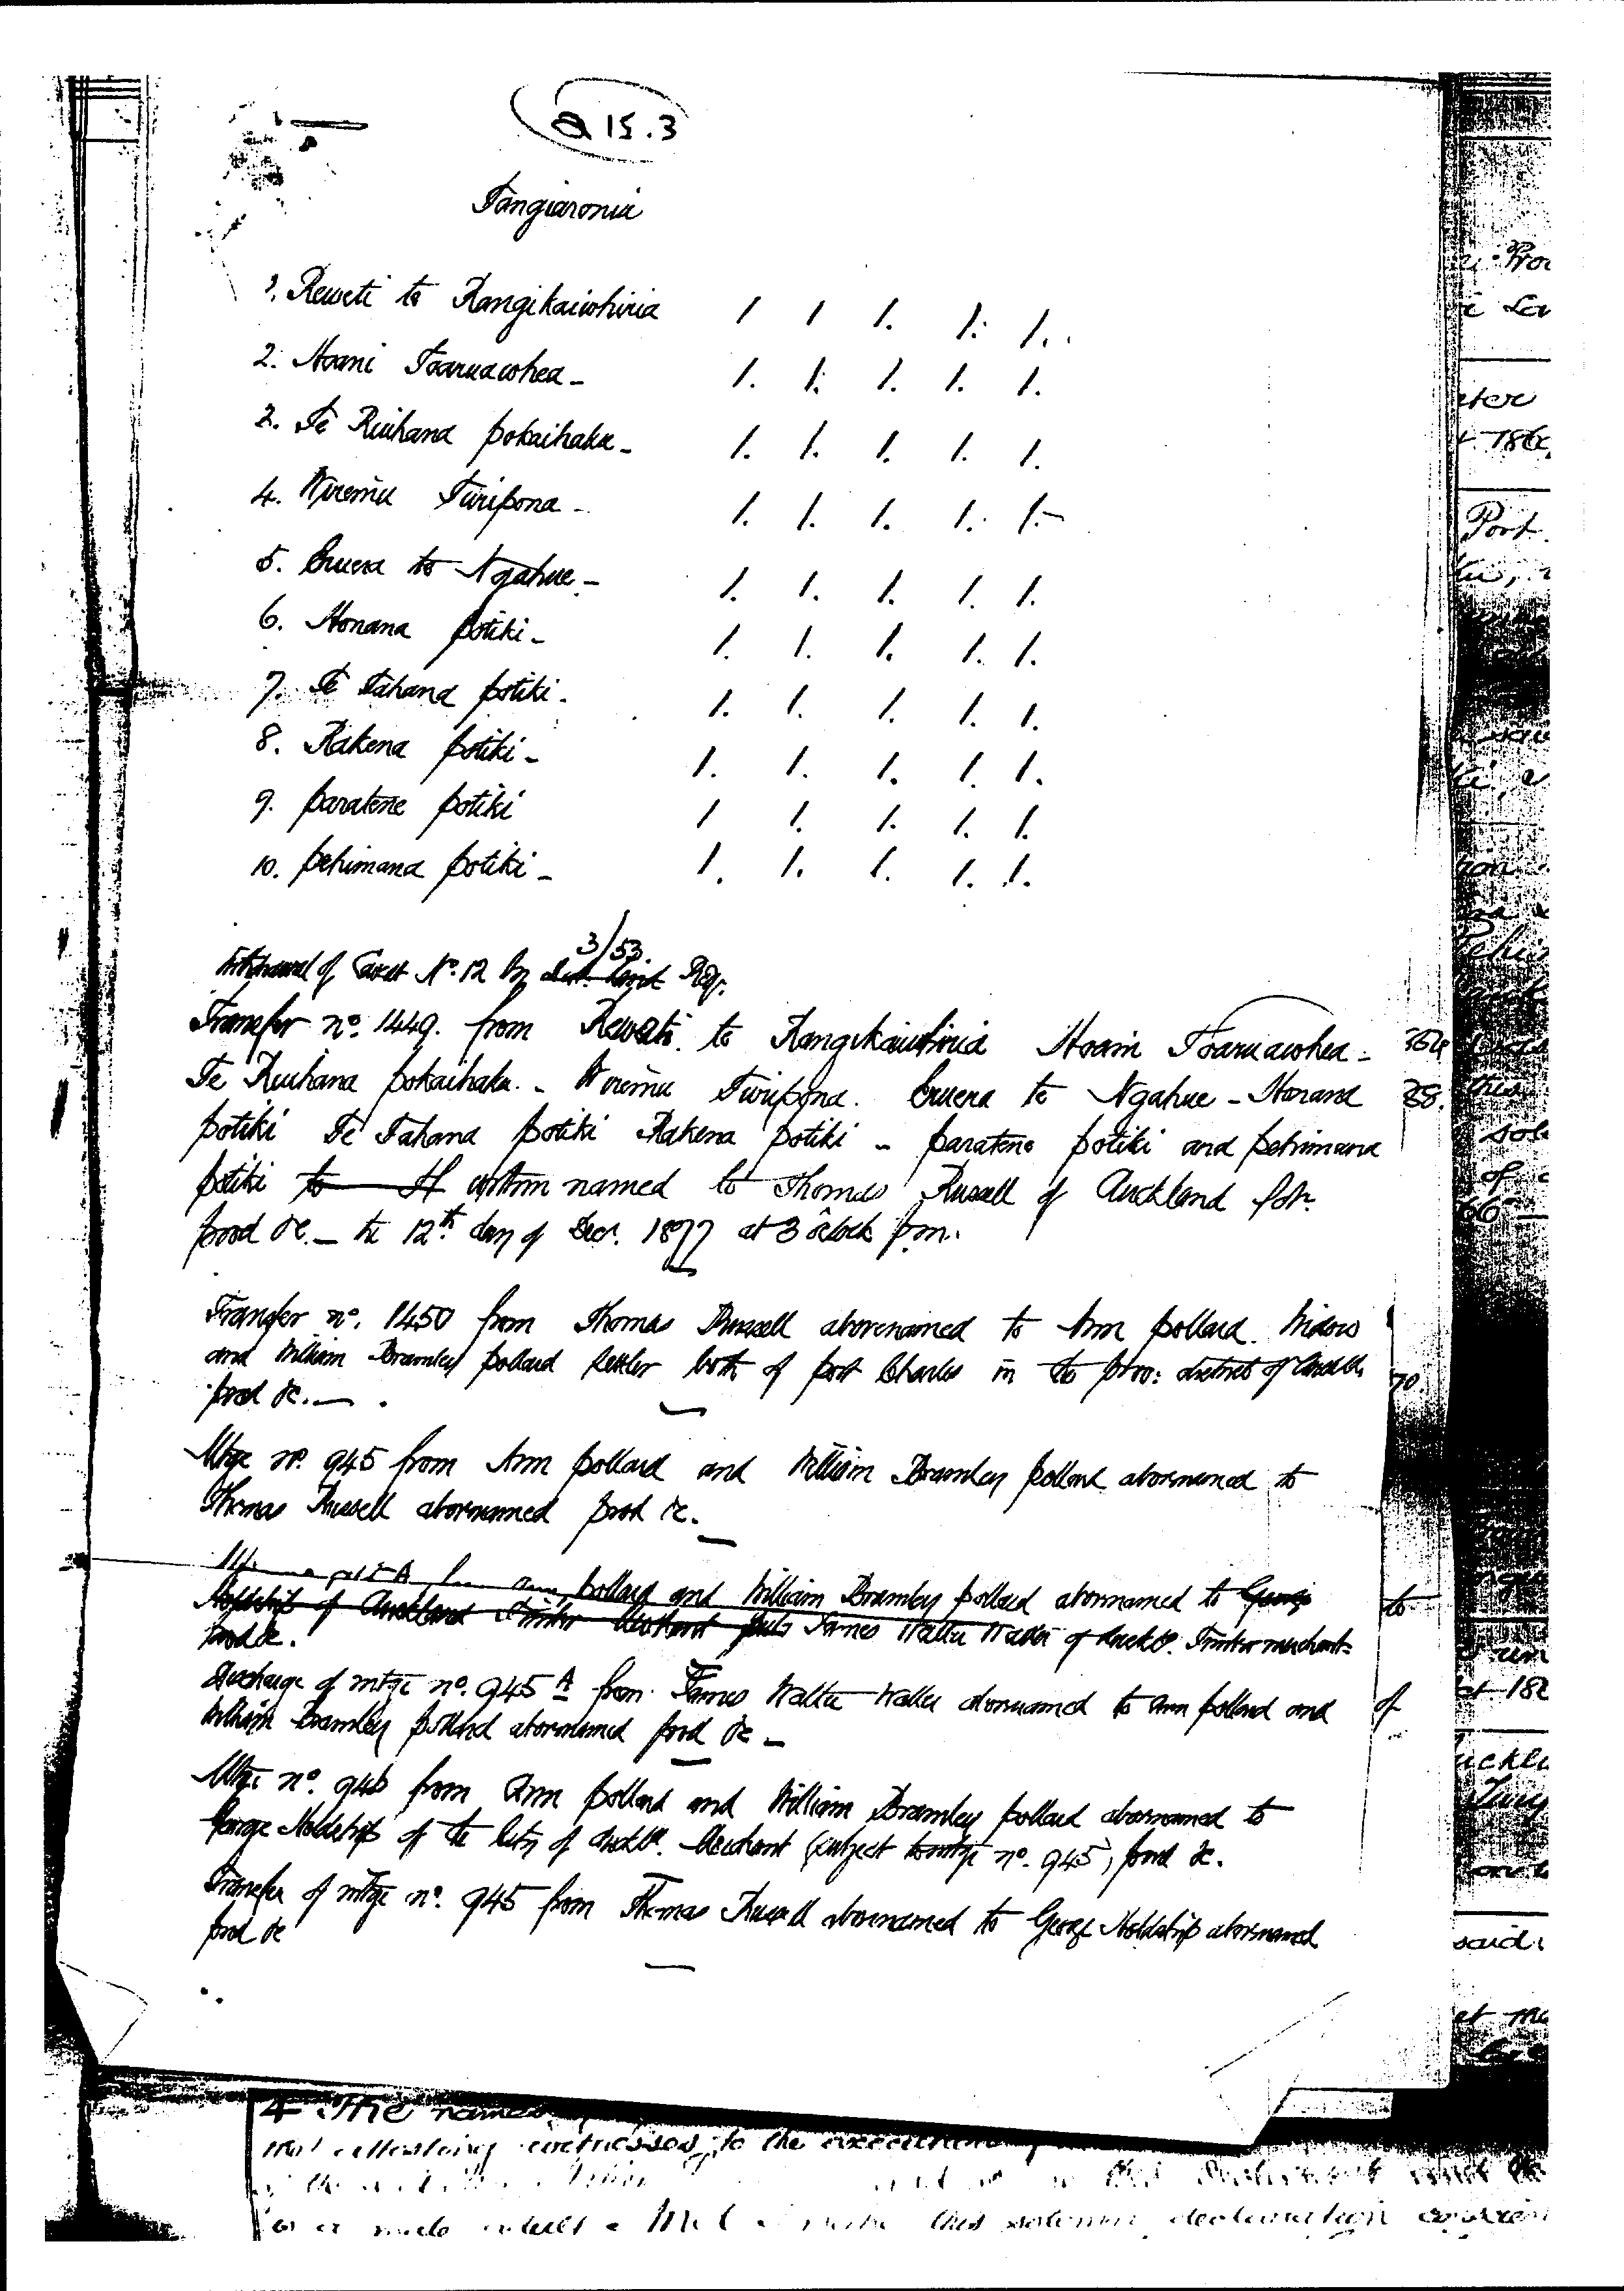 a 15.3
Tangiaronia
1. Reweti te Rangikaiwhiria 1 1 1. 1. 1.
2. Hoani Toaruawhea - 1. 1. 1. 1. 1.
3. Te Ruihana pokaihaku - 1. 1. 1. 1. 1.
4. Wiremu Turipona - 1. 1. 1. 1. 1.-
5. Eruera te Ngahue - 1. 1. 1. 1. 1.
6. Honana potiki - 1. 1. 1. 1. 1.
7. Te Tahana potiki - 1. 1. 1. 1. 1.
8. Rakena potiki - 1. 1. 1. 1. 1.
9. paratene potiki 1 1. 1. 1. 1.
10. pehimana potiki - 1. 1. 1. 1. 1.
3/53
Withdrawal of Caveat No. 12 by Reg.
Transfer no. 1449. from Reweti te Rangikaiwhiria Hoani Toaruawhea -
Te Ruihana pokaihaku - Wiremu Turipona. Eruera te Ngahue - Honana
potiki Te Tahana potiki Rakena potiki - paratene potiki and pehimana
potiki to within named to Thomas Russell of Auckland
prod &c. - the 12th day of Decr. 1877 at 3 o'clock p.m.
Transfer no. 1450 from Thomas Russell abovenamed to Ann pollard. Widow
and William Bramley pollard settler both of port Charles in the prov: district of Auckld.
prod &c. -
Mtge no. 945 from Ann pollard and William Bramley pollard abovenamed to
Thomas Russell abovenamed prod &c. -
pollard and William Bramley pollard abovenamed to George
Holdship of Auckland Timber Merchant James Walter Waller of Auckld. Timber merchant
prod &c.
Discharge of mtge no. 945 A from James Walter Waller abovenamed to Ann pollard and
William Bramley pollard abovenamed prod &c -
Mtge no. 946 from Ann pollard and William Bramley pollard abovenamed to
George Holdship of the City of Auckld. Merchant (subject to mtge no. 945) prod &c.
Transfer of mtge no. 945 from Thomas Russell abovenamed to George Holdship abovenamed
prod &c
4 The names
attesting witnesses to the execution
this solemn declaration